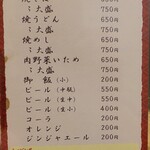 〃大盛 750円
焼うどん 650円
〃大盛 750円
焼めし 650円
〃大盛 750円
肉野菜いため 650円
御飯(小) 200円
ビール(中瓶) 550円
ビール(生中) 550円
ビール(生小) 400円
コーラ 200円
オレンジ 200円
ジンジャエール 200円